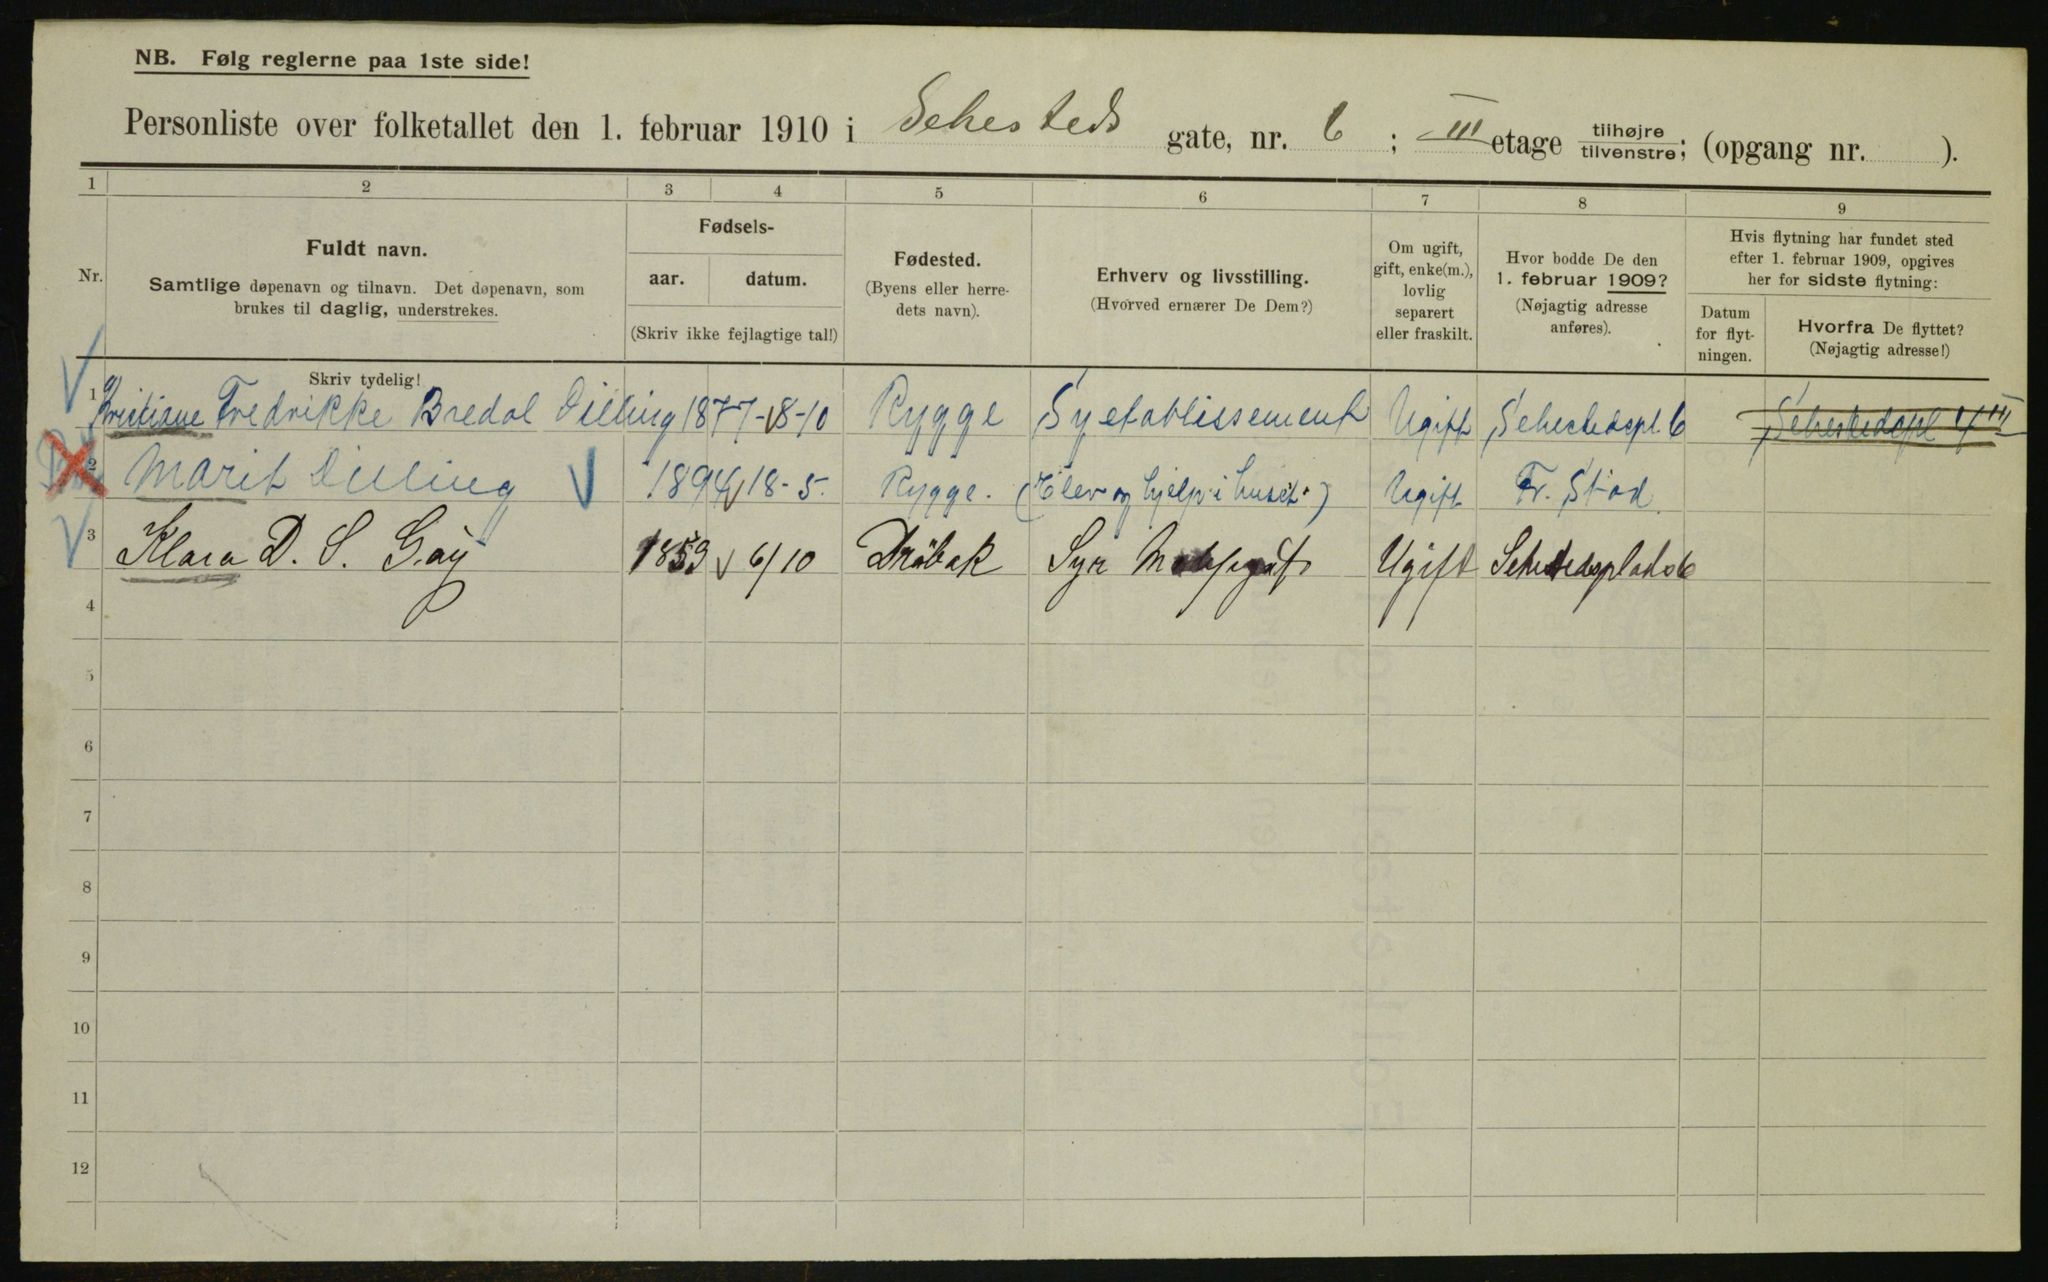 NB. Følg reglerne paa 1ste side!
Personliste over folketallet den 1. februar 1910 i Sehesteds gate, nr. 6; III etage tilhøjre tilvenstre; (opgang nr. ).
1 2 3 4 5 6 7 8 9
Nr.
Fuldt navn.
Samtlige døpenavn og tilnavn. Det døpenavn, som
brukes til daglig, understrekes.
Skriv tydelig!
Fødsels-
aar. datum.
(Skriv ikke fejlagtige tal!)
Fødested.
(Byens eller herre-
dets navn).
Erhverv og livsstilling.
(Hvorved ernærer De Dem?)
Om ugift,
gift, enke(m.),
lovlig
separert
eller fraskilt.
Hvor bodde De den
1. februar 1909?
(Nøjagtig adresse
anføres).
Hvis flytning har fundet sted
efter 1. februar 1909, opgives
her for sidste flytning:
Datum
for flyt-
ningen.
Hvorfra De flyttet?
(Nøjagtig adresse!)
1 Kristiane Fredrikke Bredal Dilling 1877 18-10 Rygge Syetablissement Ugift Sehestedspl. 6 Sehestedspl 4 III
2 Marit Dilling 1894 18-5. Rygge. (Elev og hjelp i huset.) Ugift Fr. Stad.
3 Klara D. S. Gay 1859 6/10 Drøbak Ugift Sehestedsplads 6
4
5
6
7
8
9
10
11
12